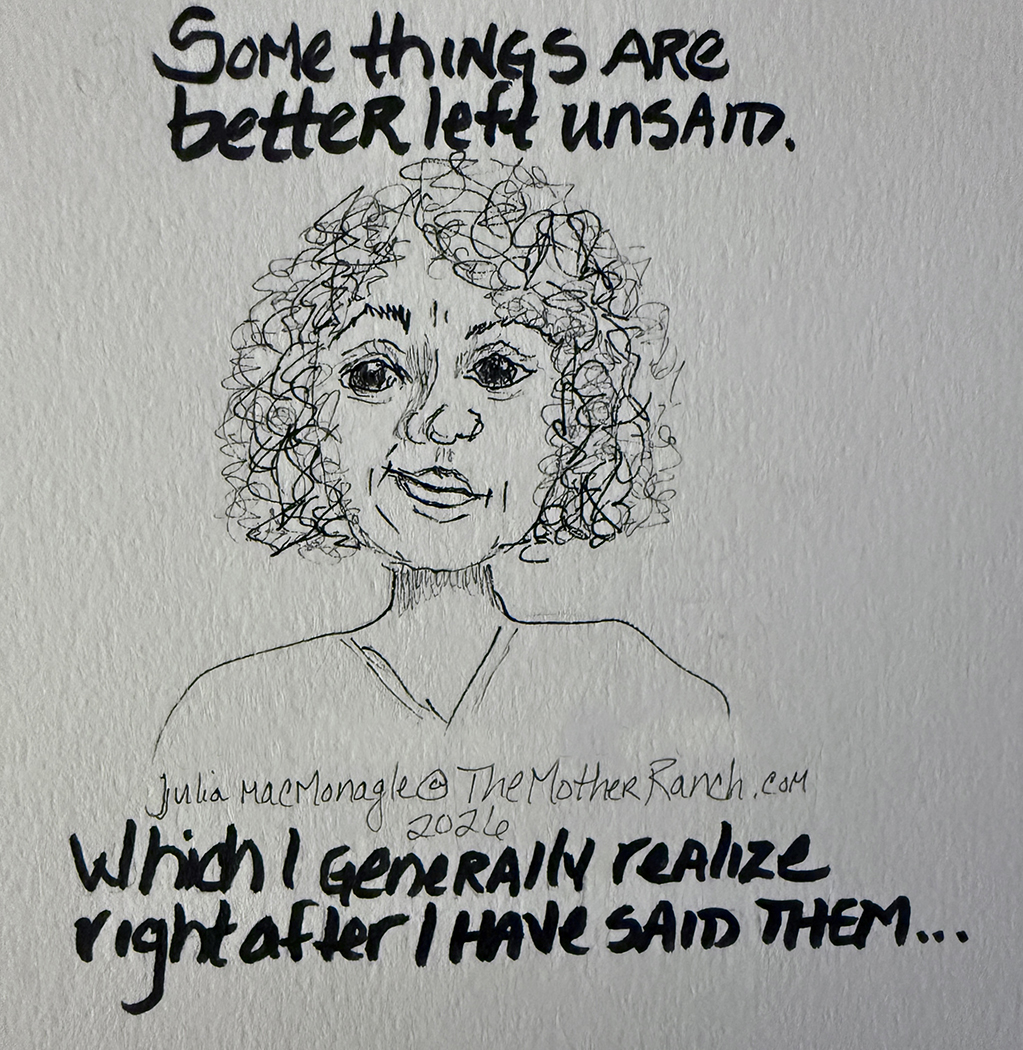 Some things are
better left unsaid.
Julia MacMonagle @ TheMotherRanch.com
2026
Which I generally realize
right after I have said them...